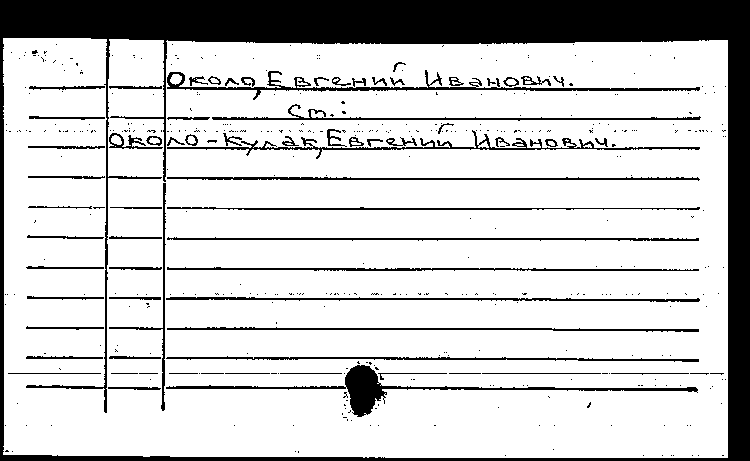 Около, Евгений Иванович.
см.:
Около-Кулак, Евгений Иванович.